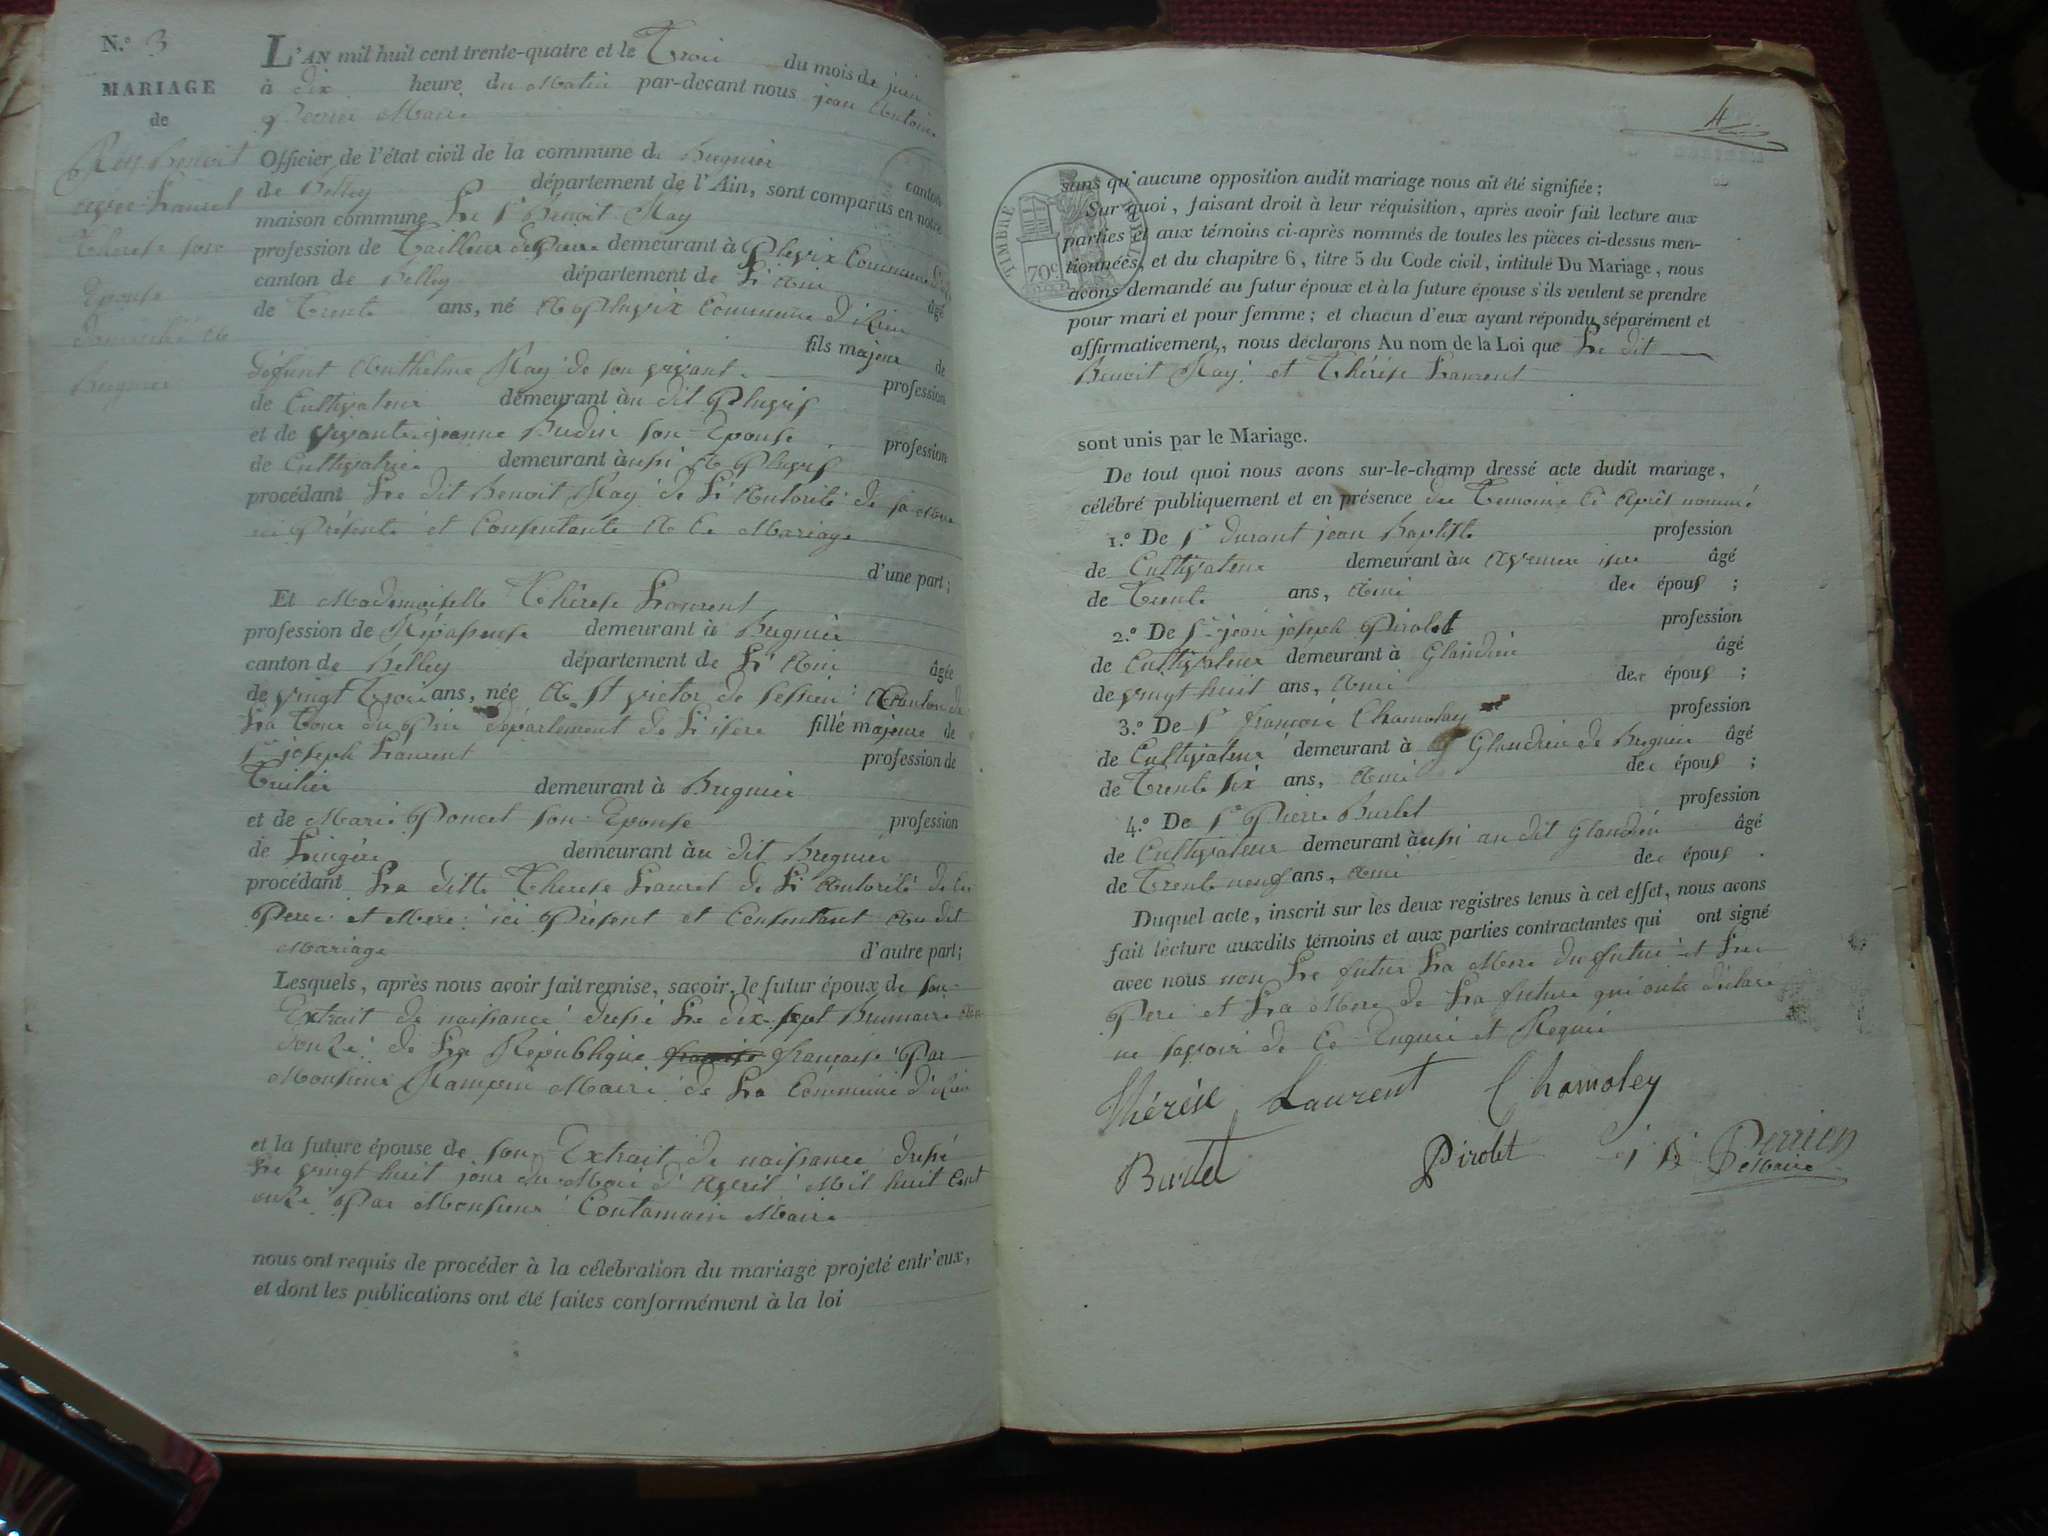 N.º 3
MARIAGE
de
Rey Benoit
avec Laurent
Therese son
Epouse
domicilié à
Bregnier
L'AN mil huit cent trente-quatre et le Trois du mois de juin
à dix heure du Matin par-devant nous jean Antoine
Perrier Maire
Officier de l'état civil de la commune de Bregnier canton
de Belley département de l'Ain, sont comparus en notre
maison commune Le Sr Benoit Ray
profession de Tailleur de Pierre demeurant à Pluvix Commune
canton de Belley département de L'Ain âgé
de Trente ans, né A Pluvix Commune d'Izieu
fils majeur de
défunt Anthelme Ray de son vivant profession
de Cultivateur demeurant àu dit Pluvis
et de vivante jeanne Budin son Epouse profession
de Cultivatrice demeurant àussi A Pluvis
procédant Le dit Benoit Ray de L'Autorité de sa Mere
ici Présente et Consentante A Ce Mariage
d'une part;
Et Mademoiselle Thérèse Laurent
profession de Répasseuse demeurant à Bregnier
canton de Belley département de L'Ain âgée
de vingt Trois ans, née A St victor de Cessieu Canton de
La Tour du Pin département de L'isere fille majeure de
Sr joseph Laurent profession de
Tuilier demeurant à Bregnier
et de Marie Poncet son Epouse profession
de Lingère demeurant àu dit Bregnier
procédant La ditte Therese Laurent de L'Autorité de ses
Pere et Mere ici Présent et Consentant Au dit
Mariage d'autre part;
Lesquels, après nous avoir fait remise, savoir, le futur époux de son
Extrait de naissance dressé Le dix sept Brumaire An
douze de La République française Par
Monsieur Rampin Maire de La Commune d'Izieu
et la future épouse de son Extrait de naissance dressé
Le vingt huit jour du Mois d'Avril Mil huit Cent
onze Par Monsieur Contamain Maire
nous ont requis de procéder à la célébration du mariage projeté entr'eux,
et dont les publications ont été faites conformément à la loi
4
TIMBRE
70c
sans qu'aucune opposition audit mariage nous ait été signifiée;
Sur quoi, faisant droit à leur réquisition, après avoir fait lecture aux
parties et aux témoins ci-après nommés de toutes les pièces ci-dessus men-
tionnées, et du chapitre 6, titre 5 du Code civil, intitulé Du Mariage, nous
avons demandé au futur époux et à la future épouse s'ils veulent se prendre
pour mari et pour femme; et chacun d'eux ayant répondu séparément et
affirmativement, nous déclarons Au nom de la Loi que Le dit
Benoit Ray et Thérèse Laurent
sont unis par le Mariage.
De tout quoi nous avons sur-le-champ dressé acte dudit mariage,
célébré publiquement et en présence des Temoins Ci Après nommé
1.º De Sr durant jean Baptiste profession
de Cultivateur demeurant àu Avenieres isere âgé
de Trente ans, Ami des époux;
2.º De Sr jean joseph Pirolet profession
de Cultivateur demeurant à Glandieu âgé
de vingt huit ans, Ami des époux;
3.º De Sr françois Chamoley profession
de Cultivateur demeurant à Glandieu de Bregnier âgé
de Trente six ans, Ami des époux;
4.º De Sr Pierre Burlet profession
de Cultivateur demeurant àussi au dit Glandieu âgé
de Trente neuf ans, Ami des époux.
Duquel acte, inscrit sur les deux registres tenus à cet effet, nous avons
fait lecture auxdits témoins et aux parties contractantes qui ont signé
avec nous non Le futur La Mere du futur et Le
Pere et La Mere de La future qui onts déclaré
ne savoir de Ce Enquis et Requis
Thérèse Laurent Chamoley
Burlet Pirolet j A Perrier
Maire